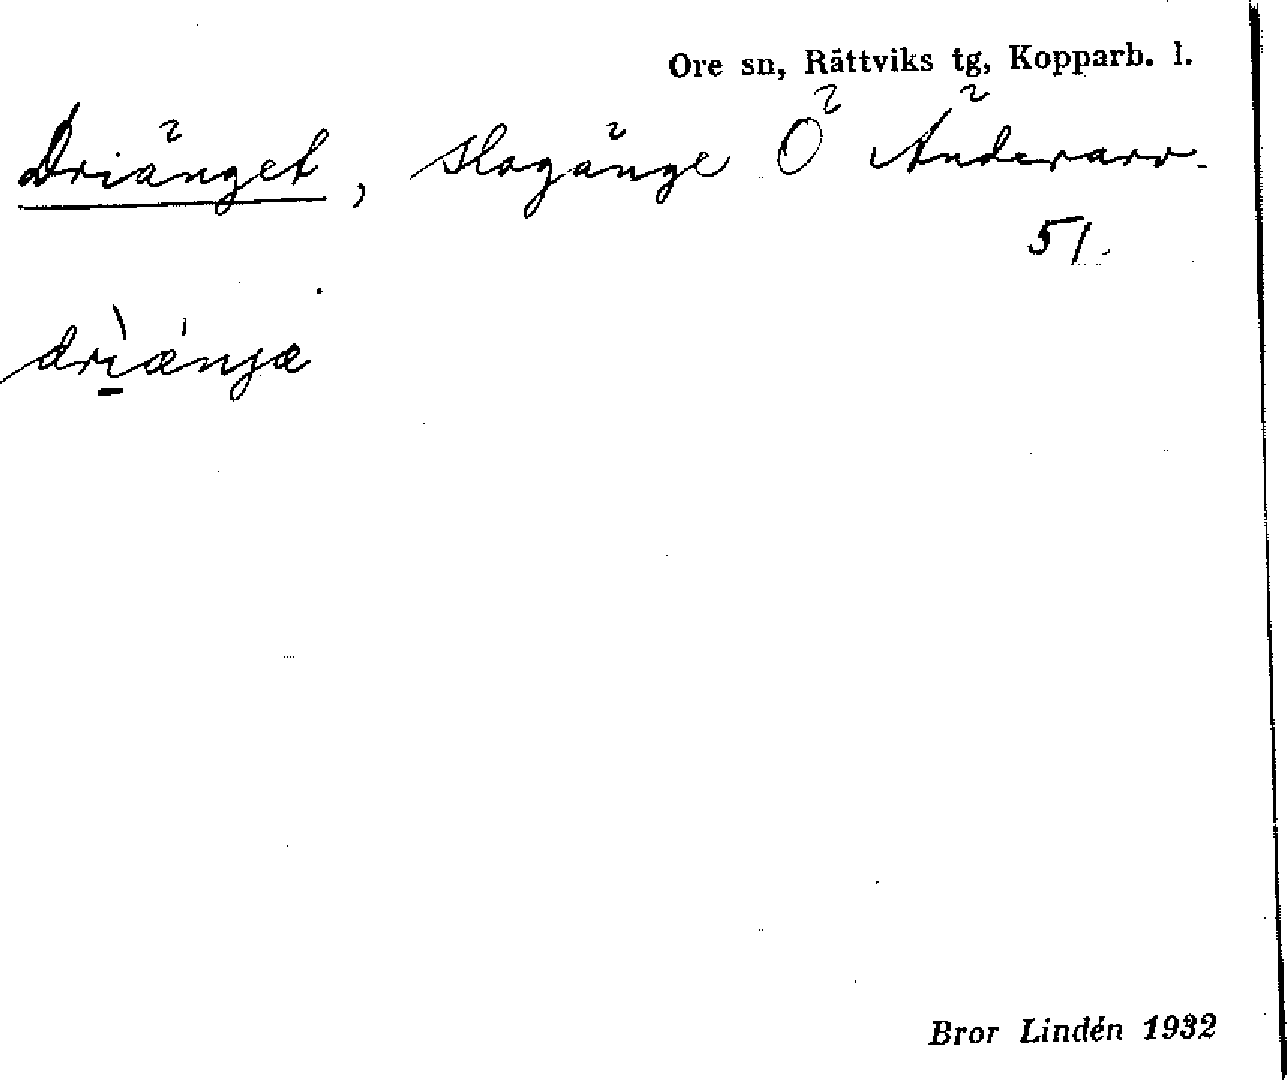 Ore sn, Rättviks tg, Kopparb. l.
Driänget, slogänge Ö Änderarv.
51.
driænjæ
Bror Lindén 1932